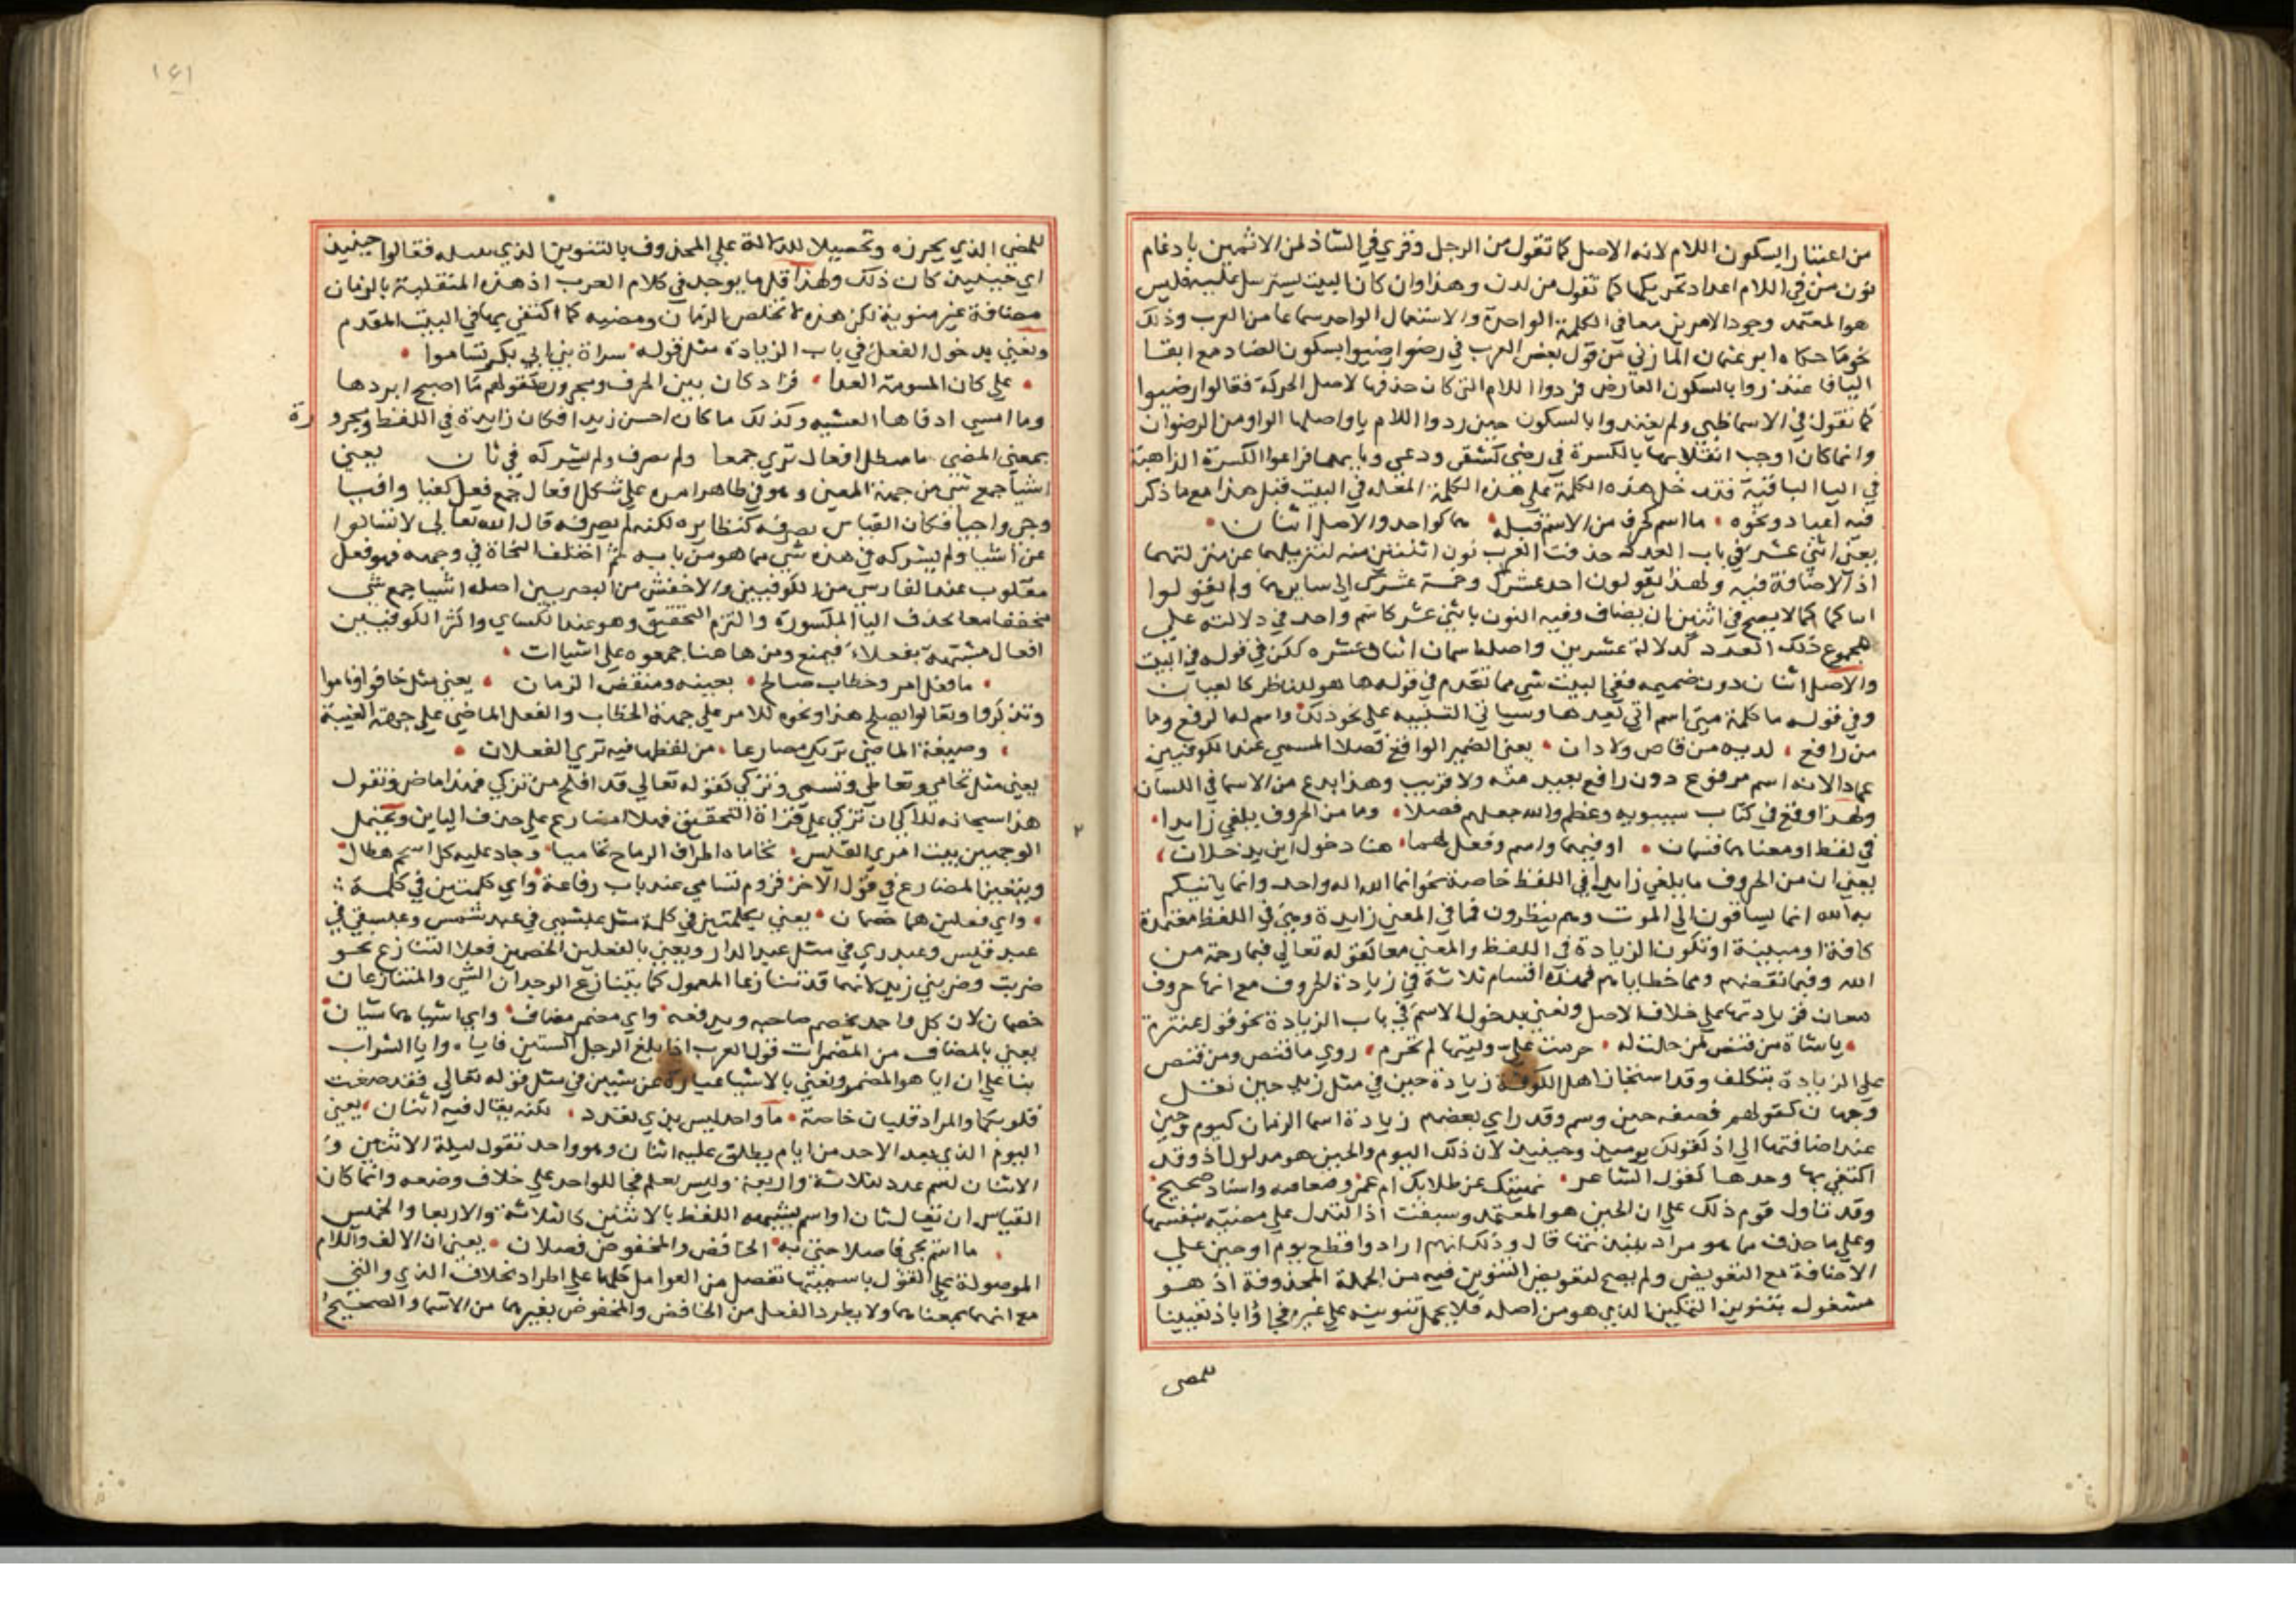 من اعتبار السكون اللام لانه الاصل كما تقول من الرجل وقري في الشاذ لمن الاثمين بادغام
نون من في اللام اعدا تحريكها كما تقول من لدن وهذا وان كان البيت يسترسل عليه فليس
هو المعتمد وجود الامرين معا في الكلمة الواحدة والاستعمال الواحد سماعا من العرب وذلك
نحو ما حكاه ابو عثمان المازني من قول بعض العرب في رضوا رضيوا بسكون الضاد مع ابقا
اليا فاعتدوا بالسكون العارض فردوا اللام التي كان حذفها لاصل الحركة فقالوا رضيوا
كما تقول في الاسما ظبي ولم يعتدوا بالسكون حين ردوا اللام يا واصلها الواو من الرضوان
وانما كان اوجب انقلابها بالكسرة في رضي كشقي ودعي وبابهما فراعوا الكسرة الذاهبة
في اليا الباقية فتدخل هذه الكلمة على هذه الكلمة المقاله في البيت قبل هذا مع ما ذكر
فيه اعياد ونحوه ما اسم كحرف من الاسم قبله هما كواحد والاصل اثنان
يعني اثني عشر في باب العدد حذفت العرب نون اثنين منه لتنزيلهما عن منزلتهما
اذ الاضافة فيه ولهذا يقولون احد عشرك وخمسة عشرك الى سايرها ولم يقولوا
كما لا يصح في اثنين ان يضاف وفيه النون باثني عشر كاسم واحد في دلالته علي
مجموع ذلك العدد كدلالة عشرين واصلها اسمان اثنان وعشره لكن في قوله في البيت
والاصل اثنان دون ضميمه ففي البيت شي مما تقدم في قوله ها هو للناظر كالعيان
وفي قوله ما كلمة مبني اسم اتي بعدها وسياتي التنبيه على نحو ذلك واسم له الرفع وما
من رافع لديه من قاص ولا دان يعني الضمير الواقع فصلا المسمي عند الكوفيين
عمادا لانه اسم مرفوع دون رافع بعيد منه ولا قريب وهذا بدع من الاسما في اللسان
ولهذا وقع في كتاب سيبويه وعظم والله جعلهم فصلا وما من الحروف يلغي زايدا
في لفظ او معنا هما قسمان او فيهما واسم وفعل لهما هنا دخول اين يدخلان
يعني ان من الحروف ما يلغي زايدا في اللفظ خاصة نحو انما الله اله واحد وانما ياتيكم
به الله انما يساقون الي الموت وهم ينظرون فما في المعني زايدة وهي في اللفظ معتمدة
كافة او مبينة او تكون الزيادة في اللفظ والمعني معا كقوله تعالي فبما رحمة من
الله وفبما نقضهم ومما خطاياهم فهذه اقسام ثلاثة في زيادة الحروف مع انها حروف
معان فزيادتها على خلاف الاصل ونعني بدخول الاسم في باب الزيادة نحو قول عنترة
يا شاة من قنص لمن حلت له حرمت علي وليتها لم تحرم روي ما قنص ومن قنص
علي الزيادة بتكلف وقد استحسان اهل الكوفة زيادة حين في مثل زيد حين بقل
وجهه كقولهم فصفه حين وسم وقد راي بعضهم زيادة اسما الزمان كيوم وحين
عند اضافتها الي اذ كقولك يومئذ وحينئذ لان ذلك اليوم والحين هو مدلول اذ وقد
اكتفي بها وحدها كقول الشاعر نهيتك عن طلابك ام عمرو واسناد صحيح
وقد تاول قوم ذلك علي ان الحين هو المعتمد وسبقت اذا لتدل علي مضيه بنفسها
وعلي ما حذف مما هو مراد قال وذلك انهم ارادوا قطع يوم او حين علي
الاضافة مع التعويض ولم يصح لتعويض التنوين فيه من الجملة المحذوفة اذ هو
مشغول بتنوين التمكين الذي هو من اصله فلا يحمل تنوينه علي غيره فجاؤا باذ تبيينا
للمضي
١٤١
للمضي الذي يحرزه وتحصيلا للدلالة علي المحذوف بالتنوين الذي فقالوا حينئذ
اي حينئذ كان ذلك ولهذا قل ما يوجد في كلام العرب اذ هذه المتقلبة بالزمان
مضافة غير منونة لكن هذه تخلص الزمان ومضيه كما اكتفي بها في البيت المقدم
ونعني بدخول الفعل في باب الزيادة مثل قوله سراة بني ابي بكر تساموا
علي كان المسومة العدا فزاد كان بين الحرف ومجروره كقولهم ما اصبح ابردها
وما امسي ادفاها العشيه وكذلك ما كان احسن زيدا فكان زايدة في اللفظ ويجرو رة
بمعني المضي ما مبطل افعال تري جمعا ولم يصرف ولم يشركه في ثان يعني
اشيا جمع شي من جهة المعني وهو في ظاهر امره علي شكل افعال جمع فعل كفيا وافيا
وجرو اجرا فكان القياس يصرفه كنظايره لكنه لم يصرفه قال الله تعالى لا تسالوا
عن اشيا ولم يشركه في هذه شي مما هو من بابه ثم اختلف النحاة في وجهه فهو فعل
مقلوب عند الفارسي من الكوفيين والاخفش من البصريين اصله اشييا جمع شي
مخففا معا بحذف اليا المكسورة والتزم التحقيق وهو عند الكساي واكثر الكوفيين
افعال مشبهة بفعلاء فيمنع ومن هاهنا جمعوه علي اشياات
ما فعل امر وخطاب صالح بعينه ومنقض الزمان يعني مثل خافوا وناموا
وتذكروا وتعالوا يصلح هذا ونحوه للامر علي جهة الخطاب والفعل الماضي علي جهة الغيبة
وصيغة الماضي تريك مضارعا من لفظها فيه تري الفعلان
يعني مثل تحامي وتعاطي وتسمي وتزكي كقوله تعالي قد افلح من تزكي فهذا ماض وتقول
هذا سبحانه لك الي ان تزكي علي قراة التحقيق فهذا مضارع علي حذف التاين ويحتمل
الوجهين بيت امري القيس تحاماه اطراف الرماح تحاميا وجاد عليه كل اسحم هطال
ويتعين المضارع في قول الآخر قروم تسامي عند باب رفاعة واي كلمتين في كلمة
واي فعلين هما خصمان يعني بكلمتين في كلمة مثل عبشمي في عبد شمس وعبقسي في
عبد قيس وعبدري في مثل عبد الدار ويعني بالفعلين الخصمين فعلا التنازع نحو
ضربت وضربني زيد لانهما قد تنازعا المعمول كما يتنازع الوجدان الشي والمتنازعان
خصمان لان كل واحد يخصم صاحبه ويدفعه واي مضمر مضاف واي اشيا هما شيان
يعني بالمضاف من المضمرات قول العرب اذا بلغ الرجل الستين فاياه وايا الشواب
بنا علي ان ايا هو المضمر ونعني بالاشيا عبارة عن شيين في مثل قوله تعالي فقد صغت
قلوبكما والمراد قلبان خاصة ما واحد ليس بذي تعدد لكنه يقال فيه اثنان يعني
اليوم الذي بعد الاحد من ايام يطلق عليه اثنان وهو واحد تقول ليلة الاثنين و
الاثنان اسم عدد كثلاثة واربعة وليس بعلم فجا للواحد علي خلاف وضعه وانما كان
القياس ان يقال ثان او اسم يشبهه اللفظ بالاثنين كالثلاثة والاربعا والخميس
ما اسم يجي فاصلا حتى به الخافض والمخفوض فصلان يعني ان الالف واللام
الموصولة علي القول باسميتها تفصل من العوامل كلها علي اطراد بخلاف الذي والتي
مع انهما بمعناهما ولا يطرد الفصل من الخافض والمخفوض بغيرهما من الاسما والصحيح